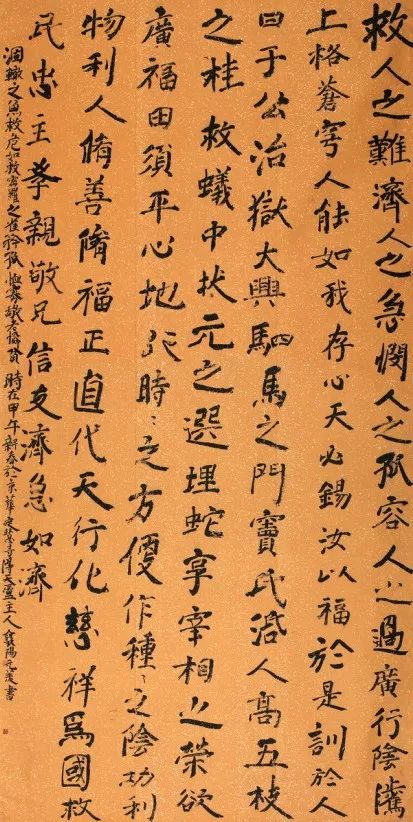 救人之難濟人之急憫人之孤容人之過廣行陰騭
上格蒼穹人能如我存心天必錫汝以福於是訓於人
曰于公治獄大興駟馬之門竇氏濟人高五枝
之桂救蟻中狀元之選埋蛇享宰相之榮欲
廣福田須平心地行時〻之方便作種〻之陰功利
物利人脩善脩福正直代天行化慈祥為國救
民忠主孝親敬兄信友濟急如濟
涸轍之魚救危如救密羅之雀矜孤恤寡敬老憐貧 時在甲午新春於京華主人書